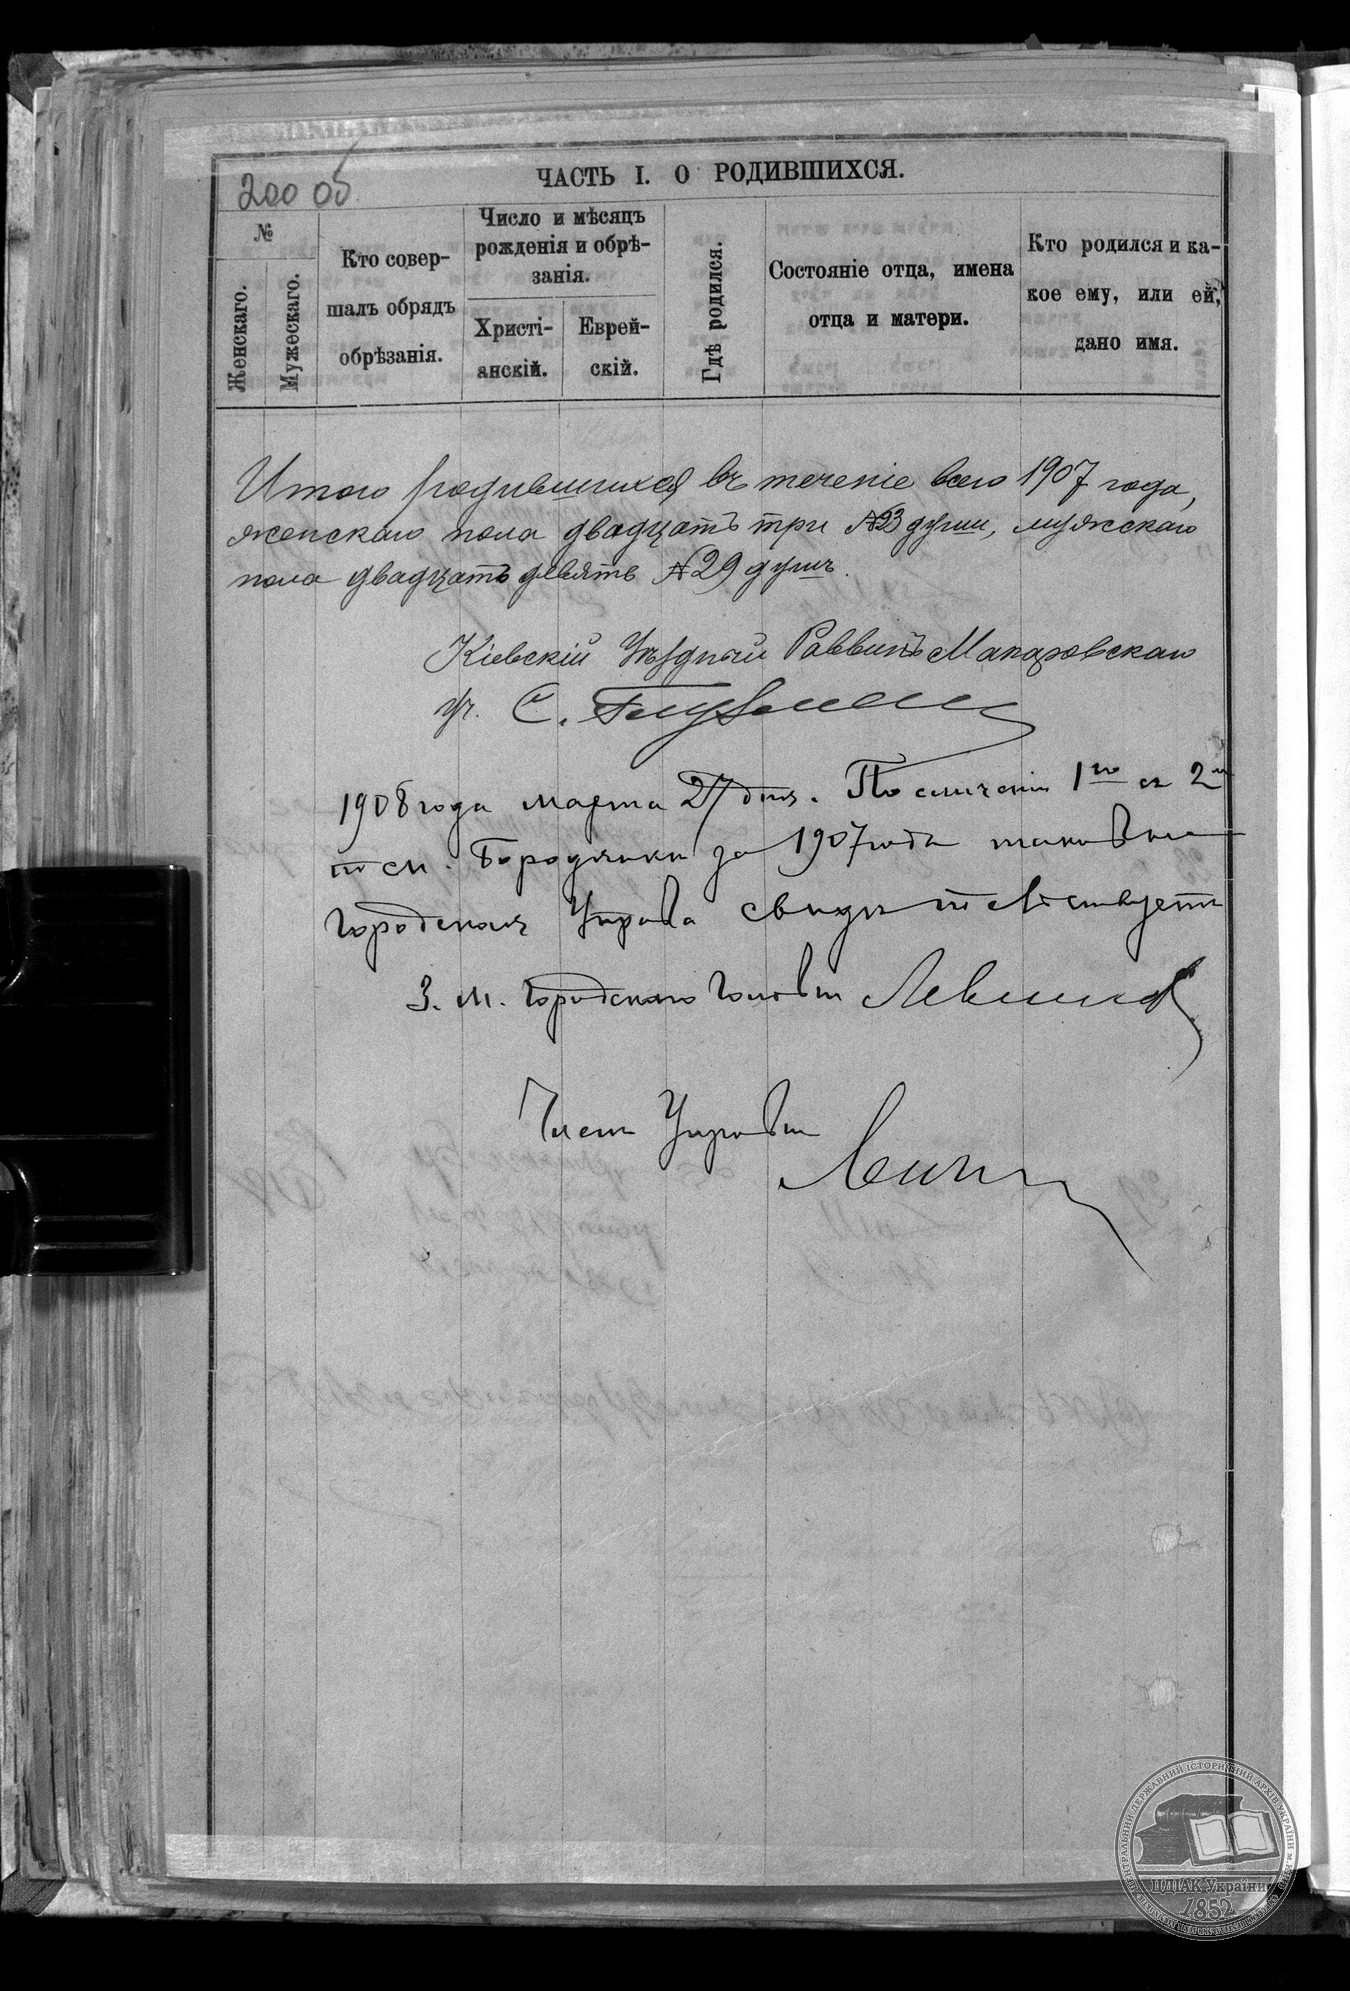 200 об
ЧАСТЬ I. О РОДИВШИХСЯ.
№
Женскаго.
Мужескаго.
Кто совер-
шалъ обрядъ
обрѣзанія.
Число и мѣсяцъ
рожденія и обрѣ-
занія.
Христі-
анскій.
Еврей-
скій.
Гдѣ родился.
Состояніе отца, имена
отца и матери.
Кто родился и ка-
кое ему, или ей,
дано имя.
Итого родившихся въ теченіе всего 1907 года,
женскаго пола двадцать три №23 души, мужскаго
пола двадцать девять №29 душъ.
Кіевскій Уѣздный Раввинъ Макаровскаго
уч. С.
1908 года марта 27 дня. По сличеніи 1го съ 2м
м. Бородянки за 1907 годъ таковыя
Городская Управа свидѣтельствуетъ
З. м. Городского Головы
Членъ Управы
ЦЕНТРАЛЬНИЙ ДЕРЖАВНИЙ ІСТОРИЧНИЙ АРХІВ УКРАЇНИ М. КИЇВ
ЦДІАК України
1852